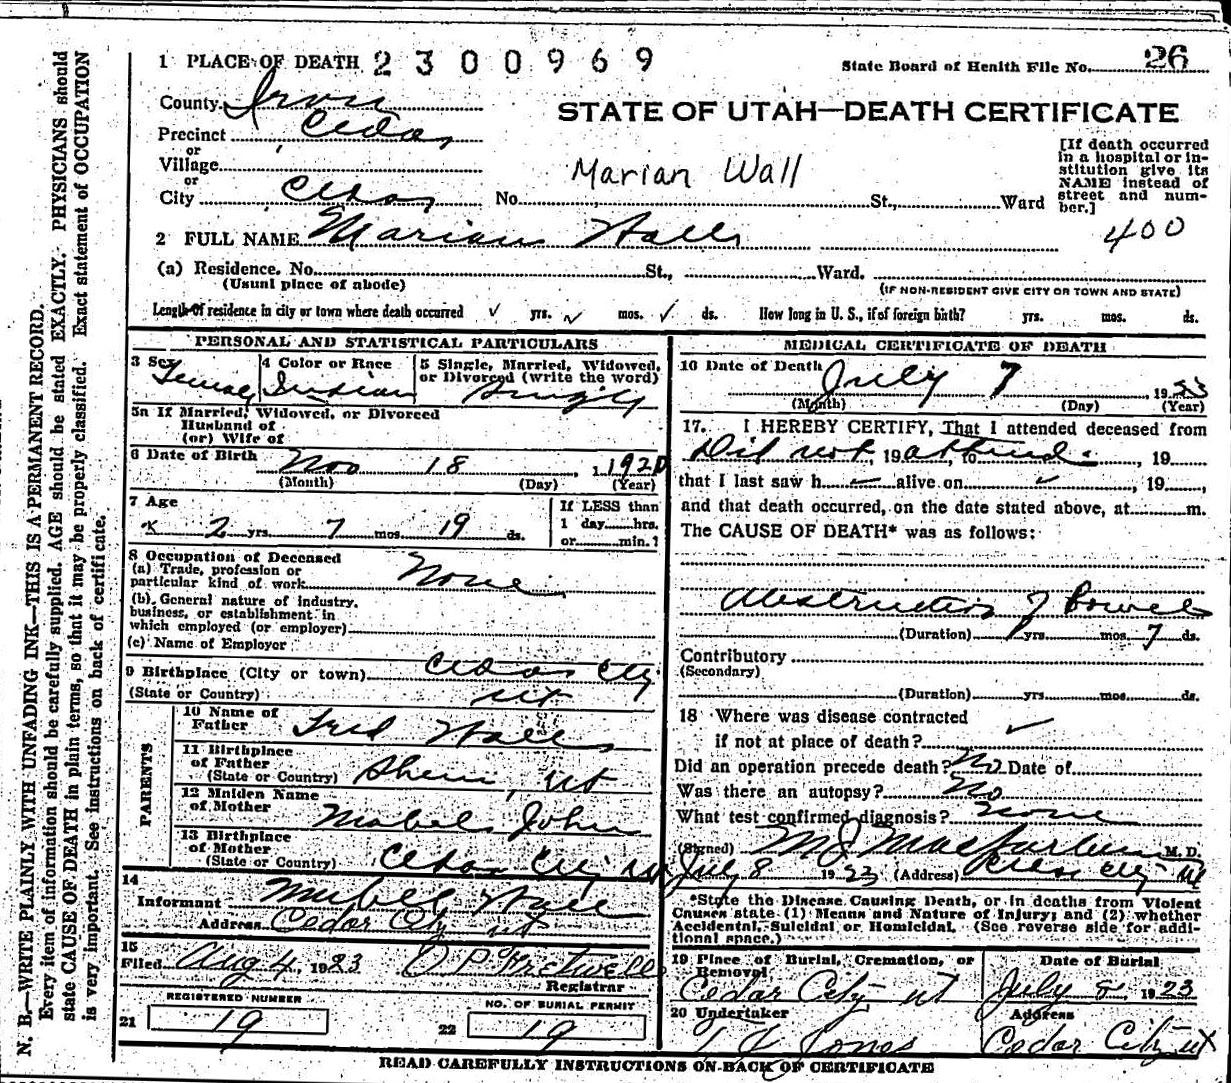 1 PLACE OF DEATH 2300969
State Board of Health File No. 26
County Iron
STATE OF UTAH—DEATH CERTIFICATE
Precinct Cedar
or
Village
or
City Cedar No. St., Ward
Marian Wall
[If death occurred
in a hospital or in-
stitution give its
NAME instead of
street and num-
ber.]
2 FULL NAME Marian Walls
400
(a) Residence. No. St., Ward.
(Usual place of abode)
(IF NON-RESIDENT GIVE CITY OR TOWN AND STATE)
Length of residence in city or town where death occurred ✓ yrs. ✓ mos. ✓ ds. How long in U. S., if of foreign birth? yrs. mos. ds.
PERSONAL AND STATISTICAL PARTICULARS
3 Sex Female
4 Color or Race Indian
5 Single, Married, Widowed,
or Divorced (write the word)
Single
5a If Married, Widowed, or Divorced
Husband of
(or) Wife of
6 Date of Birth Nov 18, 1920
(Month) (Day) (Year)
7 Age
2 yrs. 7 mos. 19 ds.
If LESS than
1 day hrs.
or min.?
8 Occupation of Deceased
(a) Trade, profession or
particular kind of work None
(b) General nature of industry,
business, or establishment in
which employed (or employer)
(c) Name of Employer
9 Birthplace (City or town) Cedar City
(State or Country) Ut
PARENTS
10 Name of
Father Fred Walls
11 Birthplace
of Father
(State or Country) Shem, Ut
12 Maiden Name
of Mother Mabel John
13 Birthplace
of Mother
(State or Country) Cedar City Ut
14
Informant Mabell Wall
Address Cedar City Ut
15
Filed Aug 4, 1923
Registrar
REGISTERED NUMBER
21 19
NO. OF BURIAL PERMIT
22 19
MEDICAL CERTIFICATE OF DEATH
16 Date of Death July 7, 1923
(Month) (Day) (Year)
17. I HEREBY CERTIFY, That I attended deceased from
Did not, 19 attend to, 19
that I last saw h ✓ alive on ✓, 19
and that death occurred, on the date stated above, at m.
The CAUSE OF DEATH* was as follows:
Obstruction of Bowels
(Duration) yrs. mos. 7 ds.
Contributory
(Secondary)
(Duration) yrs. mos. ds.
18 Where was disease contracted
if not at place of death? ✓
Did an operation precede death? No Date of
Was there an autopsy? No
What test confirmed diagnosis? None
(Signed) M J Macfarlane M. D.
July 8 1923 (Address) Cedar City Ut
*State the Disease Causing Death, or in deaths from Violent
Causes state (1) Means and Nature of Injury; and (2) whether
Accidental, Suicidal or Homicidal. (See reverse side for addi-
tional space.)
19 Place of Burial, Cremation, or
Removal
Cedar City Ut
Date of Burial
July 8, 1923
20 Undertaker
Jones
Address
Cedar City Ut
READ CAREFULLY INSTRUCTIONS ON BACK OF CERTIFICATE
N. B.—WRITE PLAINLY WITH UNFADING INK—THIS IS A PERMANENT RECORD.
Every item of information should be carefully supplied. AGE should be stated EXACTLY. PHYSICIANS should
state CAUSE OF DEATH in plain terms, so that it may be properly classified. Exact statement of OCCUPATION
is very important. See instructions on back of certificate.